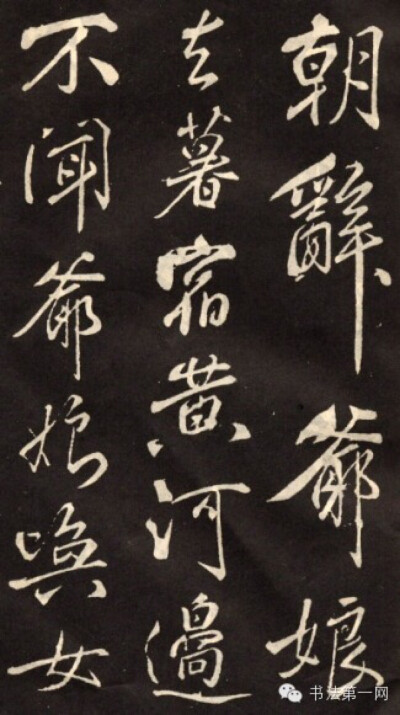 朝辭爺娘
去暮宿黄河邊
不聞爺娘喚女
书法第一网